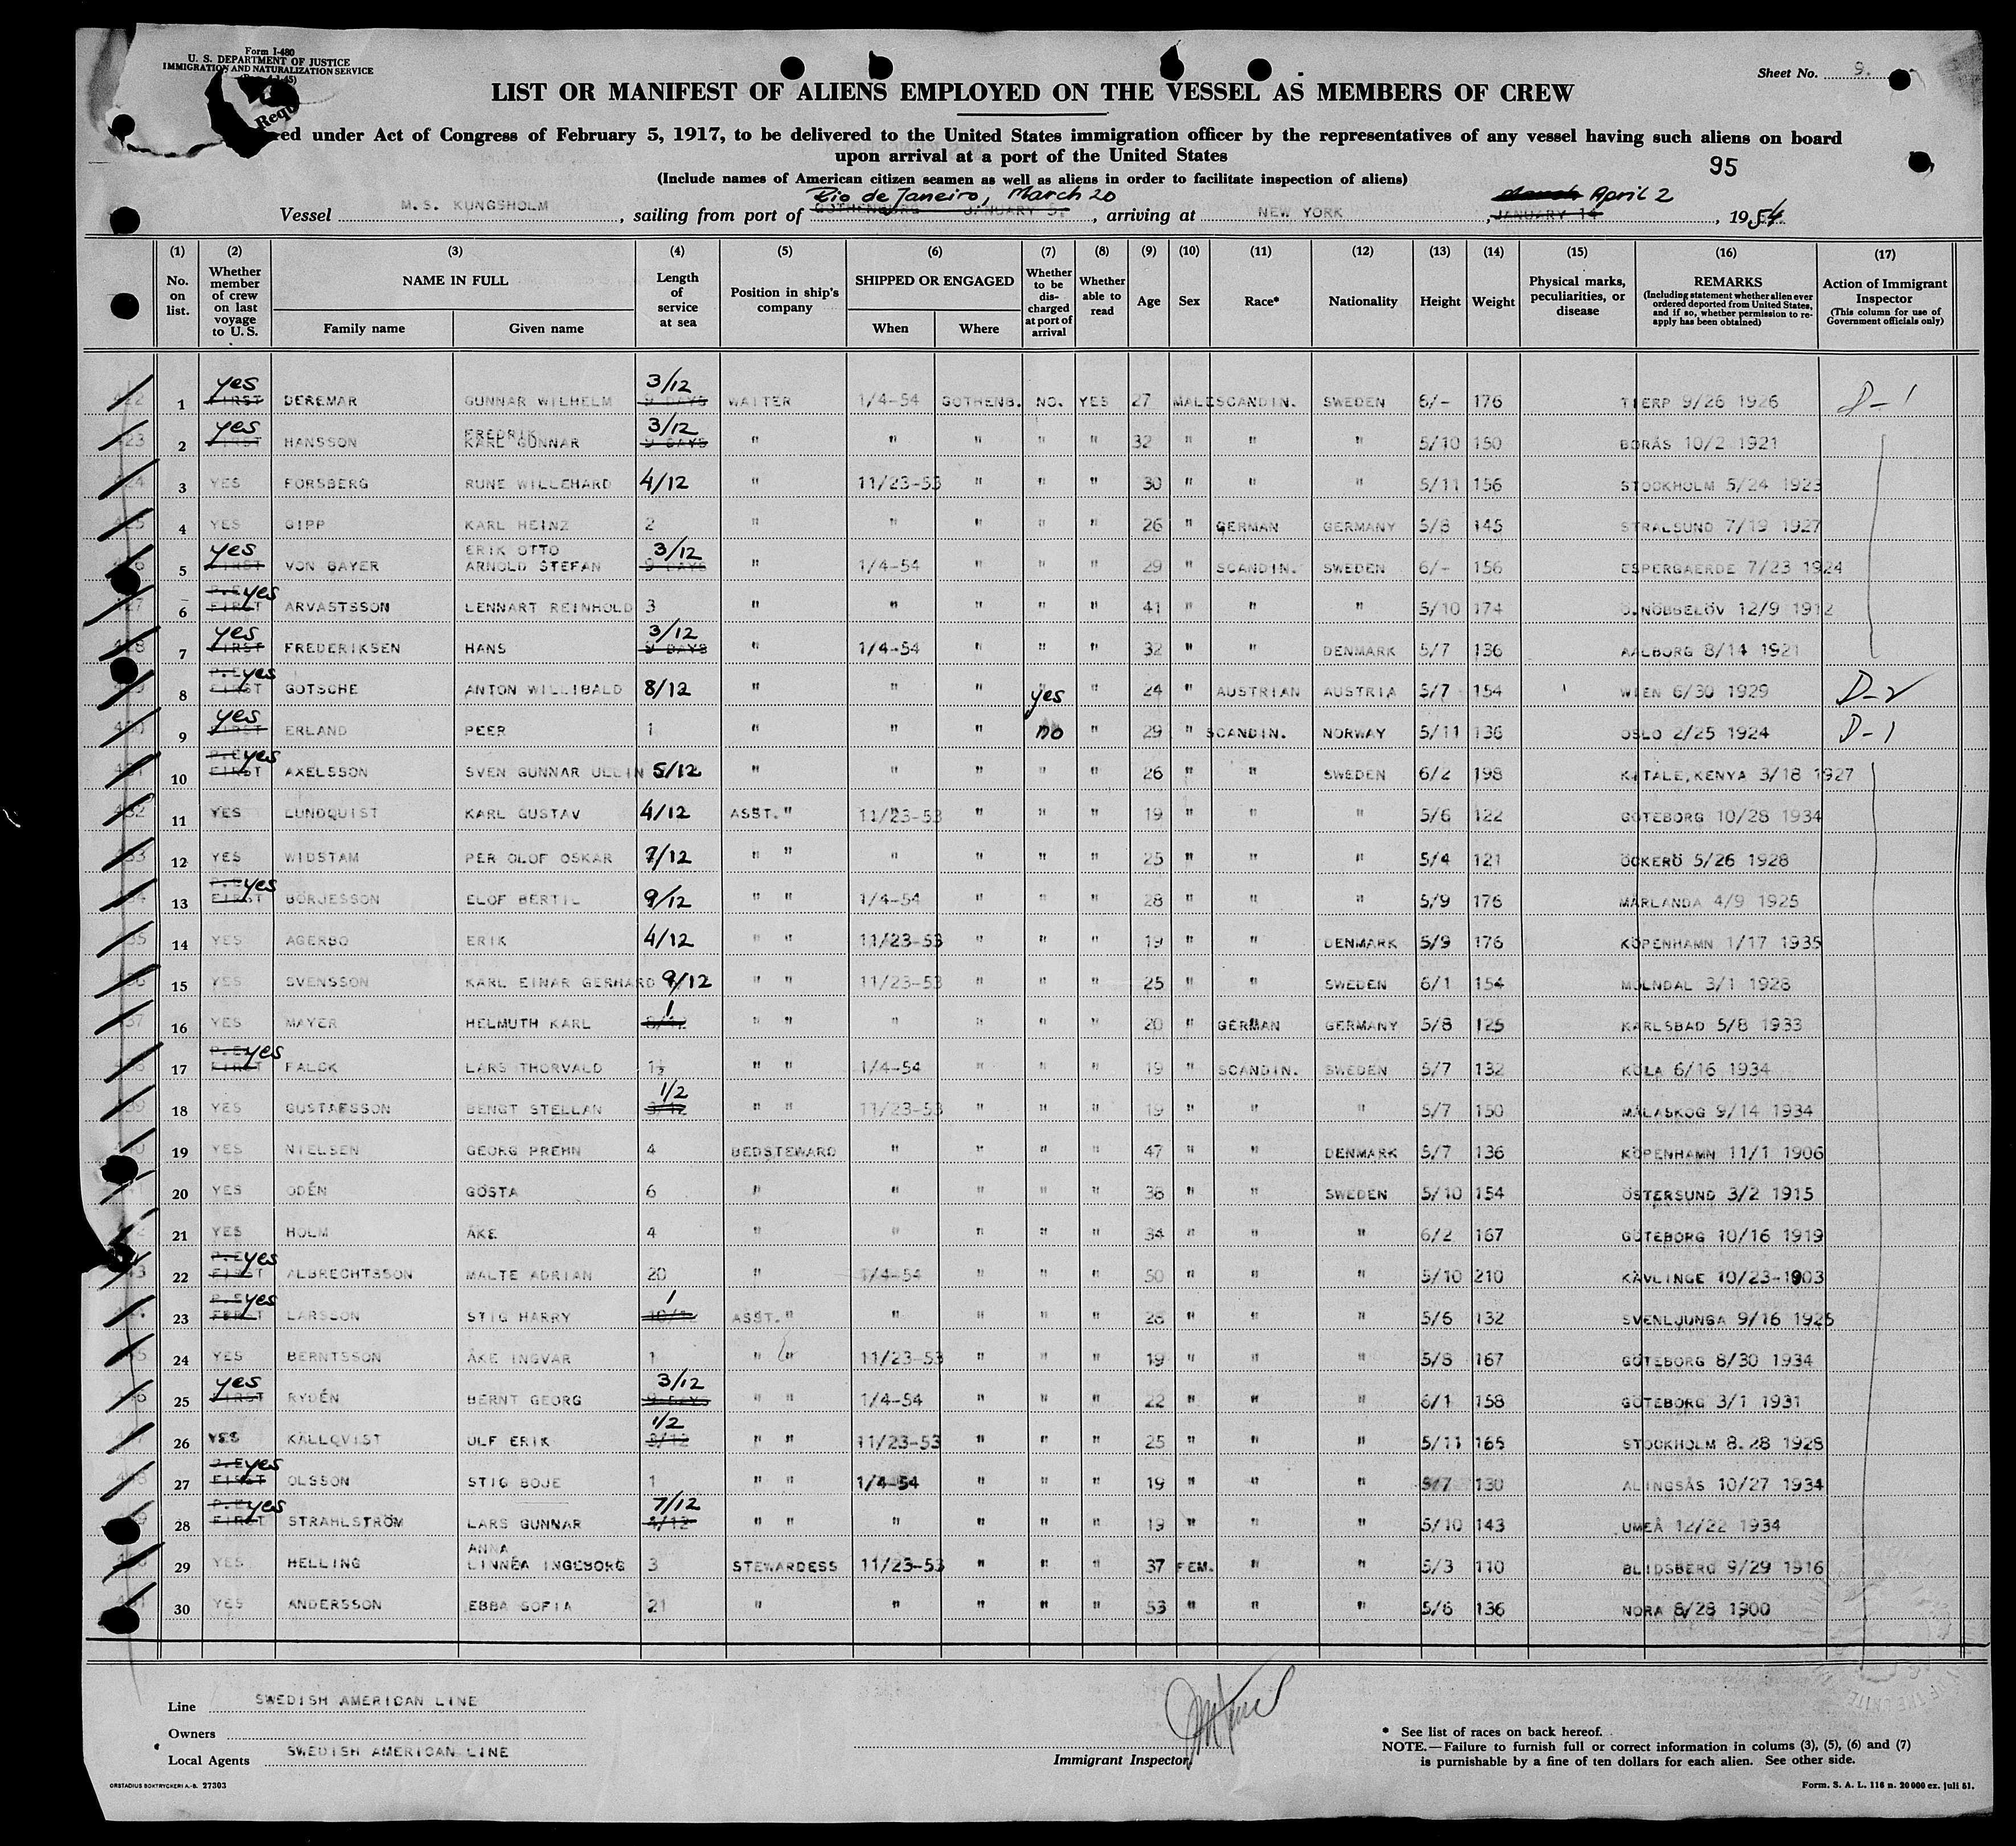 Form I-480
U. S. DEPARTMENT OF JUSTICE
IMMIGRATION AND NATURALIZATION SERVICE
Sheet No. 9.
LIST OR MANIFEST OF ALIENS EMPLOYED ON THE VESSEL AS MEMBERS OF CREW
Requ ed under Act of Congress of February 5, 1917, to be delivered to the United States immigration officer by the representatives of any vessel having such aliens on board
upon arrival at a port of the United States
95
(Include names of American citizen seamen as well as aliens in order to facilitate inspection of aliens)
Rio de Janeiro, March 20 March April 2
Vessel M.S. KUNGSHOLM, sailing from port of GOTHENBURG JANUARY 5., arriving at NEW YORK, JANUARY 14, 1954
(1) (2) (3) (4) (5) (6) (7) (8) (9) (10) (11) (12) (13) (14) (15) (16) (17)
No. on list. Whether member of crew on last voyage to U. S. NAME IN FULL Family name Given name Length of service at sea Position in ship's company SHIPPED OR ENGAGED When Where Whether to be discharged at port of arrival Whether able to read Age Sex Race* Nationality Height Weight Physical marks, peculiarities, or disease REMARKS (Including statement whether alien ever ordered deported from United States, and if so, whether permission to reapply has been obtained) Action of Immigrant Inspector (This column for use of Government officials only)
1 yes FIRST DEREMAR GUNNAR WILHELM 3/12 9 DAYS WAITER 1/4-54 GOTHENB. NO. YES 27 MALE SCANDIN. SWEDEN 6/- 176 TIERP 9/26 1926 D-1
2 yes FIRST HANSSON FREDRIK KARL GUNNAR 3/12 9 DAYS " " " " " 32 " " " 5/10 150 BORÅS 10/2 1921
3 YES FORSBERG RUNE WILLEHARD 4/12 " 11/23-53 " " " 30 " " " 5/11 156 STOCKHOLM 5/24 1923
4 YES GIPP KARL HEINZ 2 " " " " " 26 " GERMAN GERMANY 5/8 145 STRALSUND 7/19 1927
5 yes FIRST VON BAYER ERIK OTTO ARNOLD STEFAN 3/12 9 DAYS " 1/4-54 " " " 29 " SCANDIN. SWEDEN 6/- 156 ESPERGAERDE 7/23 1924
6 P.E. yes FIRST ARVASTSSON LENNART REINHOLD 3 " " " " " 41 " " " 5/10 174 S.NÖBBELÖV 12/9 1912
7 yes FIRST FREDERIKSEN HANS 3/12 9 DAYS " 1/4-54 " " " 32 " " DENMARK 5/7 136 AALBORG 8/14 1921
8 P.E. yes FIRST GOTSCHE ANTON WILLIBALD 8/12 " " " yes " 24 " AUSTRIAN AUSTRIA 5/7 154 WIEN 6/30 1929 D-2
9 yes FIRST ERLAND PEER 1 " " " no " 29 " SCANDIN. NORWAY 5/11 136 OSLO 2/25 1924 D-1
10 P.E. yes FIRST AXELSSON SVEN GUNNAR ULLIN 5/12 " " " " " 26 " " SWEDEN 6/2 198 KITALE, KENYA 3/18 1927
11 YES LUNDQUIST KARL GUSTAV 4/12 ASST. " 11/23-53 " " " 19 " " " 5/6 122 GÖTEBORG 10/28 1934
12 YES WIDSTAM PER OLOF OSKAR 7/12 " " " " " " 25 " " " 5/4 121 ÖCKERÖ 5/26 1928
13 P.E. yes FIRST BÖRJESSON ELOF BERTIL 9/12 " " 1/4-54 " " " 28 " " " 5/9 176 MÅRLANDA 4/9 1925
14 YES AGERBO ERIK 4/12 " " 11/23-53 " " " 19 " " DENMARK 5/9 176 KÖPENHAMN 1/17 1935
15 YES SVENSSON KARL EINAR GERHARD 9/12 " " 11/23-53 " " " 25 " " SWEDEN 6/1 154 MÖLNDAL 3/1 1928
16 YES MAYER HELMUTH KARL 1 8/12 " " " " " " 20 " GERMAN GERMANY 5/8 125 KARLSBAD 5/8 1933
17 P.E. yes FIRST FALCK LARS THORVALD 1½ " " 1/4-54 " " " 19 " SCANDIN. SWEDEN 5/7 132 KÖLA 6/16 1934
18 YES GUSTAFSSON BENGT STELLAN 1/2 3/12 " " 11/23-53 " " " 19 " " " 5/7 150 MÅLASKOG 9/14 1934
19 YES NIELSEN GEORG PREHN 4 BEDSTEWARD " " " " 47 " " DENMARK 5/7 136 KÖPENHAMN 11/1 1906
20 YES ODÉN GÖSTA 6 " " " " " 38 " " SWEDEN 5/10 154 ÖSTERSUND 3/2 1915
21 YES HOLM ÅKE 4 " " " " " 34 " " " 6/2 167 GÖTEBORG 10/16 1919
22 P.E. yes FIRST ALBRECHTSSON MALTE ADRIAN 20 " 1/4-54 " " " 50 " " " 5/10 210 KÄVLINGE 10/23-1903
23 P.E. yes FIRST LARSSON STIG HARRY 1 10/12 ASST. " " " " " 28 " " " 5/6 132 SVENLJUNGA 9/16 1925
24 YES BERNTSSON ÅKE INGVAR 1 " " 11/23-53 " " " 19 " " " 5/8 167 GÖTEBORG 8/30 1934
25 yes FIRST RYDÉN BERNT GEORG 3/12 9 DAYS " " 1/4-54 " " " 22 " " " 6/1 158 GÖTEBORG 3/1 1931
26 YES KÄLLQVIST ULF ERIK 1/2 3/12 " " 11/23-53 " " " 25 " " " 5/11 165 STOCKHOLM 8.28 1928
27 P.E. yes FIRST OLSSON STIG BOJE 1 " " 1/4-54 " " " 19 " " " 5/7 130 ALINGSÅS 10/27 1934
28 P.E. yes FIRST STRAHLSTRÖM LARS GUNNAR 7/12 4/12 " " " " " " 19 " " " 5/10 143 UMEÅ 12/22 1934
29 YES HELLING ANNA LINNÉA INGEBORG 3 STEWARDESS 11/23-53 " " " 37 FEM. " " 5/3 110 BLIDSBERG 9/29 1916
30 YES ANDERSSON EBBA SOFIA 21 " " " " " 53 " " " 5/6 136 NORA 8/28 1900
Line SWEDISH AMERICAN LINE
Owners
Local Agents SWEDISH AMERICAN LINE
Immigrant Inspector
* See list of races on back hereof.
NOTE.—Failure to furnish full or correct information in colums (3), (5), (6) and (7)
is purnishable by a fine of ten dollars for each alien. See other side.
ORSTADIUS BOKTRYCKERI A.-B. 27303
Form. S. A. L. 116 n. 20 000 ex. juli 51.